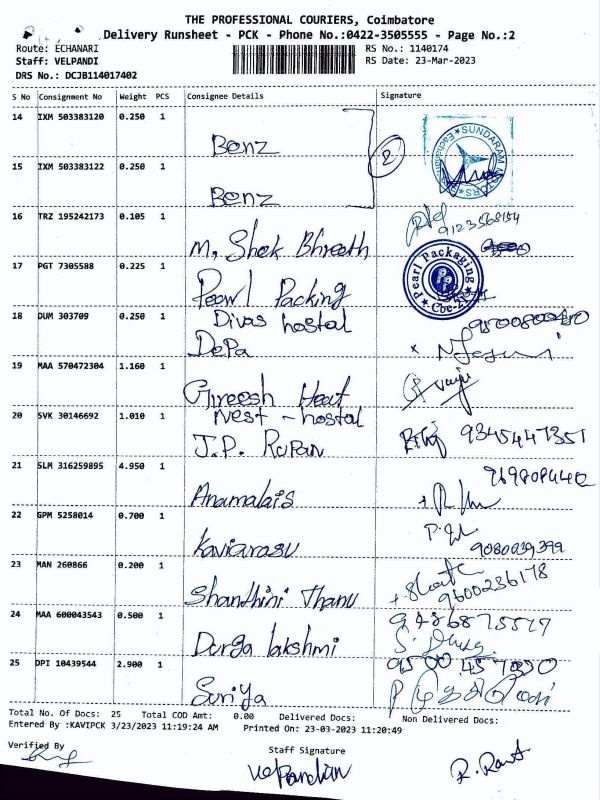 THE PROFESSIONAL COURIERS, Coimbatore
Delivery Runsheet - PCK - Phone No.:0422-3505555 - Page No.:2
Route: ECHANARI RS No.: 1140174
Staff: VELPANDI RS Date: 23-Mar-2023
DRS No.: DCJB114017402
S No Consignment No Weight PCS Consignee Details Signature
14 IXM 503383120 0.250 1
Benz
2
SUNDARAM MOTORS
15 IXM 503383122 0.250 1
Benz
16 TRZ 195242173 0.105 1
M, Shek Bhreath
9123568154
17 PGT 7305588 0.225 1
Pearl Packing
Pearl Packaging
PP
18 DUM 303709 0.250 1
Divas hostal
Depa
19 MAA 570472304 1.160 1
Gireesh Heat
Nest - hostal
20 SVK 30146692 1.010 1
J.P. Rupan
9345447351
21 SLM 316259895 4.950 1
Anamalais
22 GPM 5258014 0.700 1
Kaviarasu
9080039399
23 MAN 260866 0.200 1
Shanthini Thanu
9600236178
24 MAA 600043543 0.500 1
Durga lakshmi
25 DPI 10439544 2.900 1
Suriya
Total No. Of Docs: 25 Total COD Amt: 0.00 Delivered Docs: Non Delivered Docs:
Entered By :KAVIPCK 3/23/2023 11:19:24 AM Printed On: 23-03-2023 11:20:49
Verified By Staff Signature
VelPandian